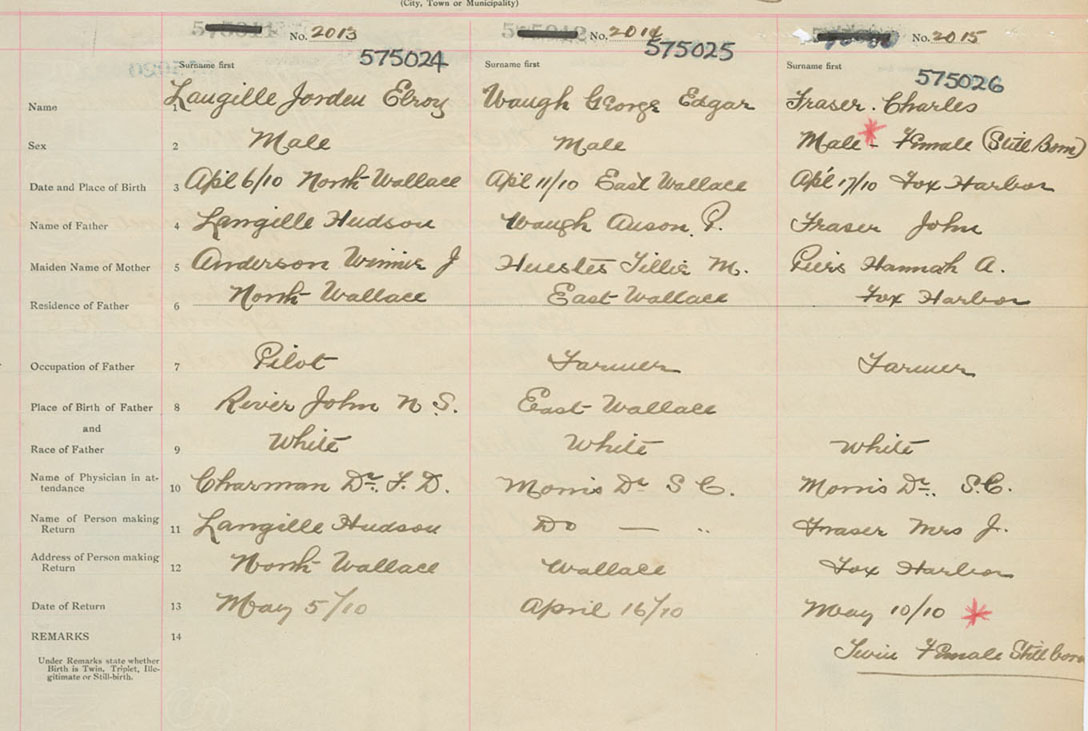 (City, Town or Municipality)
No. 2013 No. 2014 No. 2015
575024 575025 575026
Surname first Surname first Surname first
Name 1 Langille Jorden Elroy Waugh George Edgar Fraser. Charles
Sex 2 Male Male Male - Female (Still Born)
Date and Place of Birth 3 Apl 6/10 North Wallace Apl 11/10 East Wallace Apl 17/10 Fox Harbor
Name of Father 4 Langille Hudson Waugh Auson P. Fraser John
Maiden Name of Mother 5 Anderson Winnie J Huestis Tillie M. Piers Hannah A.
Residence of Father 6 North Wallace East Wallace Fox Harbor
Occupation of Father 7 Pilot Farmer Farmer
Place of Birth of Father 8 River John N S. East Wallace
and
Race of Father 9 White White White
Name of Physician in at-
tendance 10 Charman Dr. F. D. Morris Dr S C. Morris Dr. S.C.
Name of Person making
Return 11 Langille Hudson Do — " Fraser Mrs J.
Address of Person making
Return 12 North Wallace Wallace Fox Harbor
Date of Return 13 May 5/10 April 16/10 May 10/10
REMARKS 14 Twin Female Still born
Under Remarks state whether
Birth is Twin, Triplet, Ille-
gitimate or Still-birth.